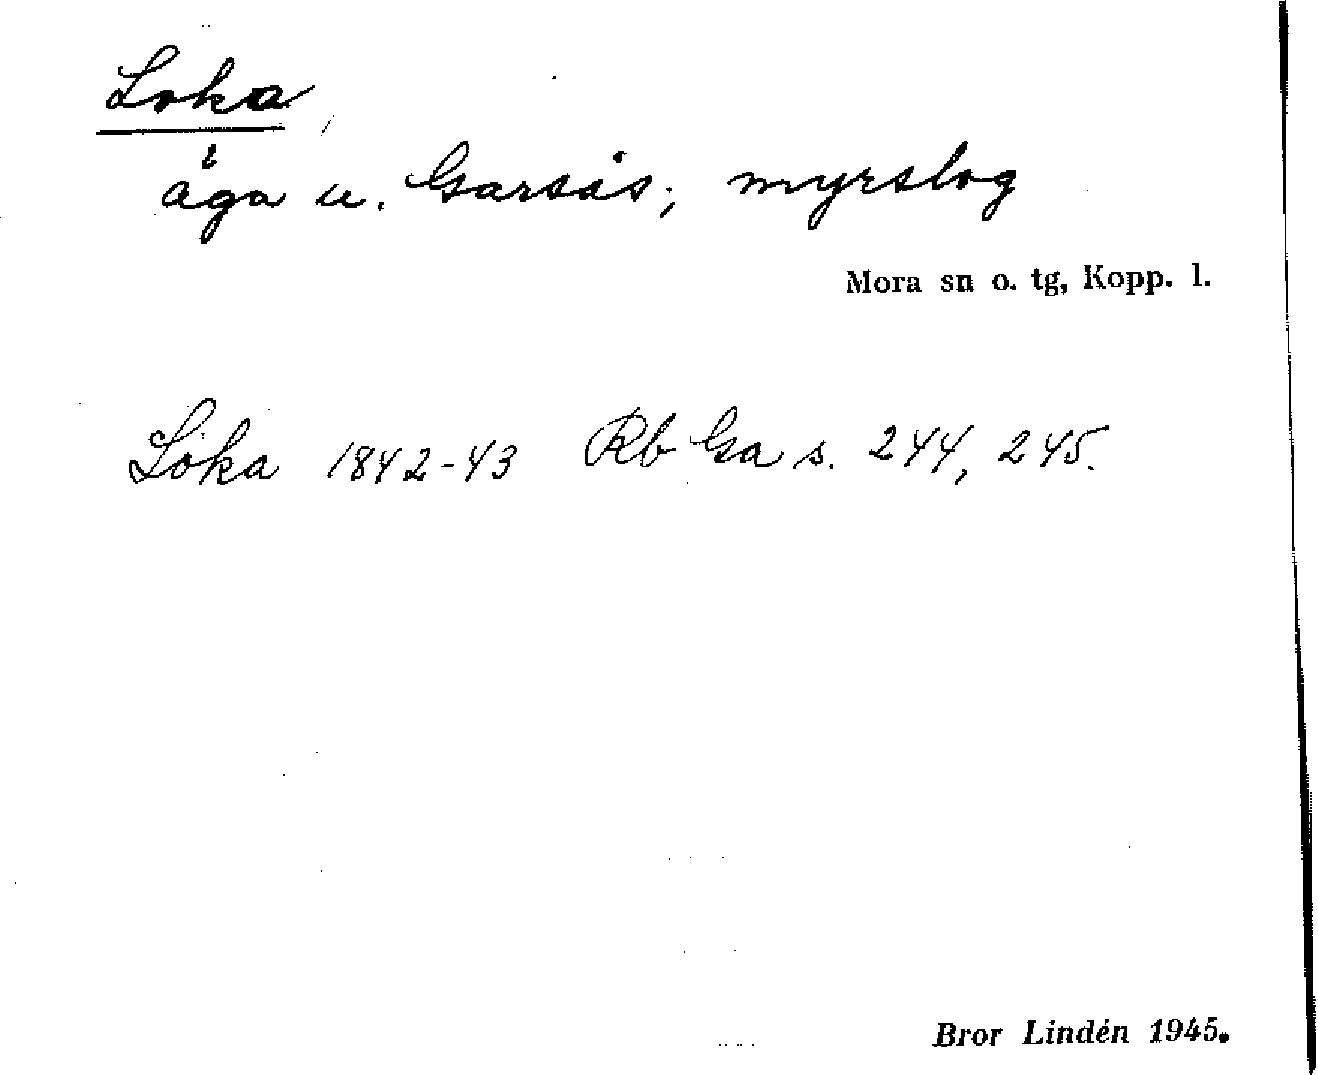 Loka
äga u. Garsås; myrslog
Mora sn o. tg, Kopp. l.
Loka 1842-43 Rb Ga s. 244, 245.
Bror Lindén 1945.